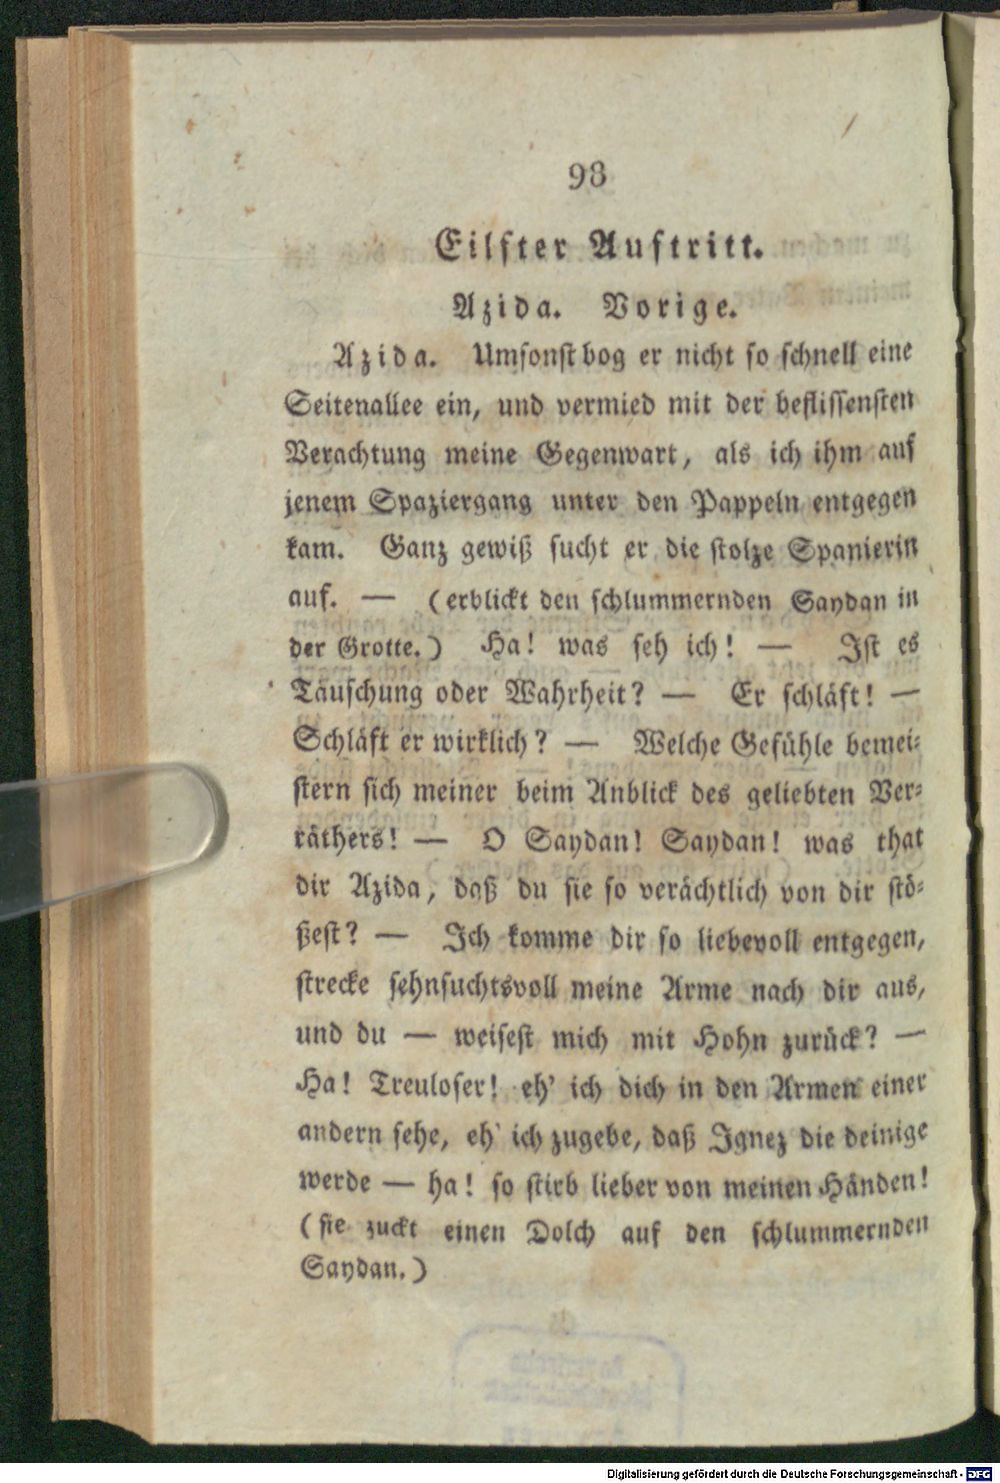 98
Eilfter Auftritt.
Azida. Vorige.
Azida. Umsonst bog er nicht so schnell eine
Seitenallee ein, und vermied mit der beflissensten
Verachtung meine Gegenwart, als ich ihm auf
jenem Spaziergang unter den Pappeln entgegen
kam. Ganz gewiß sucht er die stolze Spanierin
auf. — (erblickt den schlummernden Saydan in
der Grotte.) Ha! was seh ich! — Ist es
Täuschung oder Wahrheit? — Er schläft! —
Schläft er wirklich? — Welche Gefühle bemei-
stern sich meiner beim Anblick des geliebten Ver-
räthers! — O Saydan! Saydan! was that
dir Azida, daß du sie so verächtlich von dir stö-
ßest? — Ich komme dir so liebevoll entgegen,
strecke sehnsuchtsvoll meine Arme nach dir aus,
und du — weisest mich mit Hohn zurück? —
Ha! Treuloser! eh' ich dich in den Armen einer
andern sehe, eh' ich zugebe, daß Ignez die deinige
werde — ha! so stirb lieber von meinen Händen!
(sie zuckt einen Dolch auf den schlummernden
Saydan.)
Digitalisierung gefördert durch die Deutsche Forschungsgemeinschaft - DFG